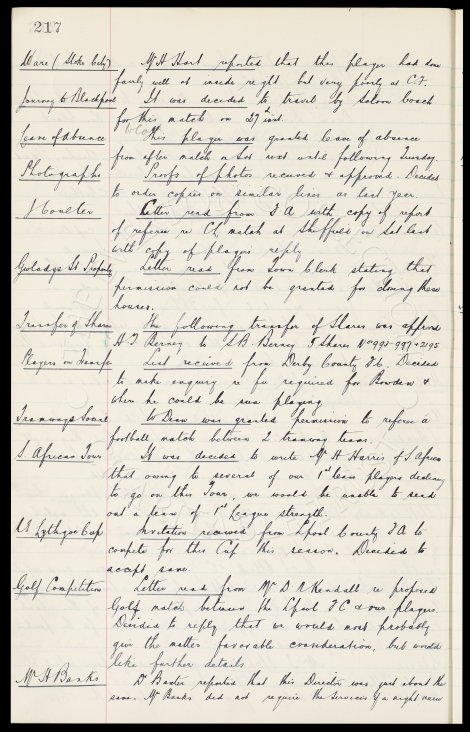 217
Ware (Stoke City) Mr H Hart reported that this player had done
fairly well at inside right but very poorly at C.F.
Journey to Blackpool It was decided to travel by saloon coach
for this match on 27th inst.
Leave of absence This player was granted leave of absence
from after match on Sat next until following Tuesday.
Photographs Proofs of photos received & approved. Decided
to order copies on similar lines as last year.
J Coulter Letter read from F A with copy of report
of referee re CL match at Sheffield on Sat last
with copy of players reply
Gwladys St Property Letter read from Town Clerk stating that
permission could not be granted for closing these
houses.
Transfer of Shares The following transfer of Shares was approved
H. J Berney to S B Berney 5 Shares Nos 993-997 & 2195
Players on Transfer List received from Derby County F C. Decided
to make enquiry re fee required for Bowden &
when he could be seen playing
Tramways W Dean was granted permission to referee a
football match between 2 tramway teams.
S. African Tour It was decided to write Mr H Harris of S Africa
that owing to several of our 1st team players declining
to go on this Tour, we would be unable to send
out a team of 1st League strength.
Lythgoe Cup Invitation received from Lpool County F A to
compete for this Cup this season. Decided to
accept same.
Golf Competition Letter read from Mr D R Kendall re proposed
Golf match between the Lpool F C & our players.
Decided to reply that we would most probably
give the matter favorable consideration, but would
like further details
Mr H Banks Dr Baxter reported that this Director was just about the
same. Mr Banks did not require the Services of a night nurse